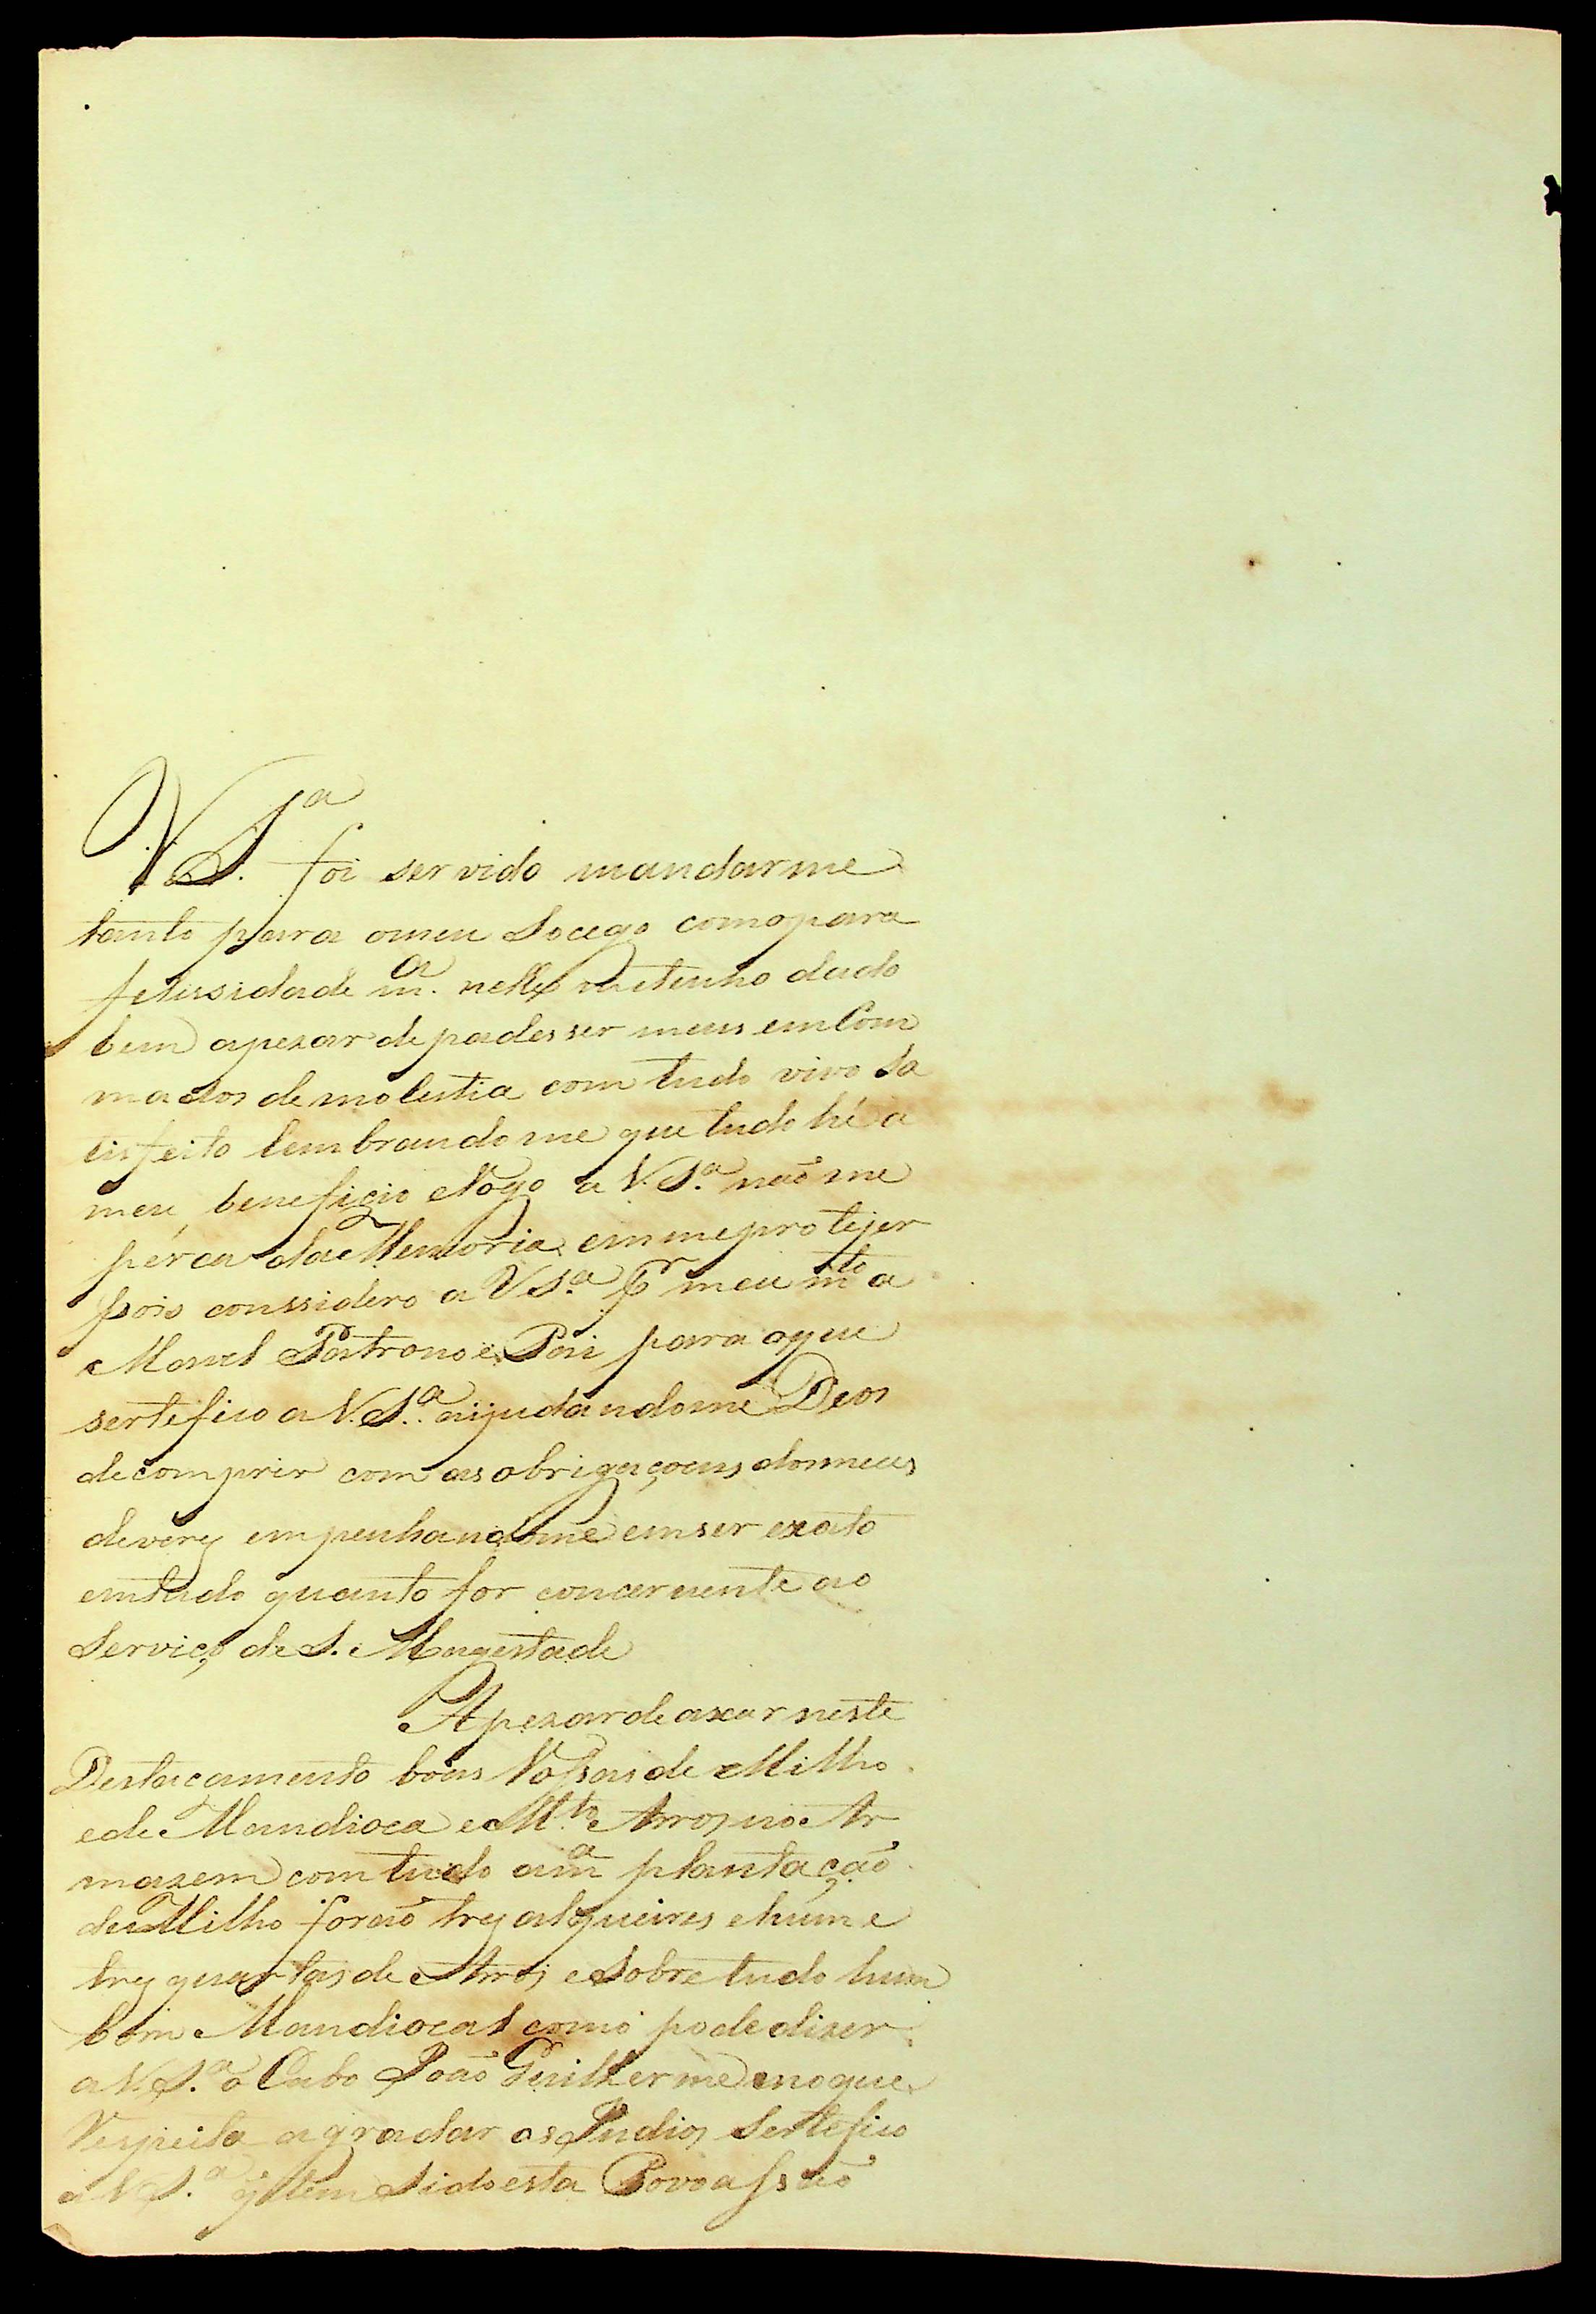 V S.ª foi servido mandarme
tanto para omeu Socego comopara
felissidade m.ª nelle metenho dado
bem apezar de padesser meus emCom
modos de molestia com tudo vivo Sa
tisfeito lembrandome que tudo hé a
meu beneficio eRogo a V. S.ª naõ me
pérca da Memoria em me protejer
pois conssidero a V S.ª p.r meu m.to a
Mavel Patrono e Pai para oque
sertefico a V. S.ª aijudandome Deos
decomprir com as obrigaçoens dos meus
deveres empenhandome emser exato
emtudo quanto for concernente ao
Serviço de S. Magestade
Apezar de axar neste
Destacamento boas Rossas de Milho
ede Mandioca e M.to Arros no Ar
mazem com tudo a m.ª plantaçaõ
de Milho foraõ tres alqueires ehum e
tres quartas de Arros e Sobre tudo hum
bom Mandiocal como pode dizer
a V. S.ª o Cabo Joaõ Guilherme enoque
Respeita agradar os Indios Sertefico
a V S.ª q̃ tem Sido esta Povoassaõ